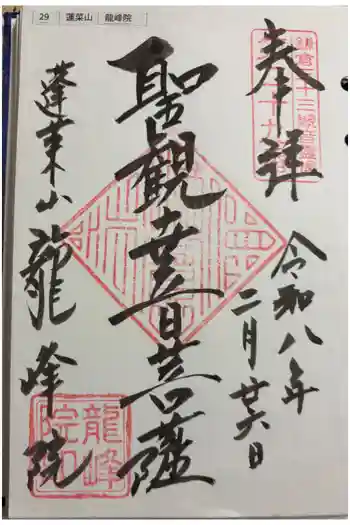 29 蓬莱山 龍峰院
奉拝
鎌倉三十三観音霊場
第二十九番
令和八年
二月廿六日
聖観世音菩薩
蓬莱山龍峰院
龍峰院印